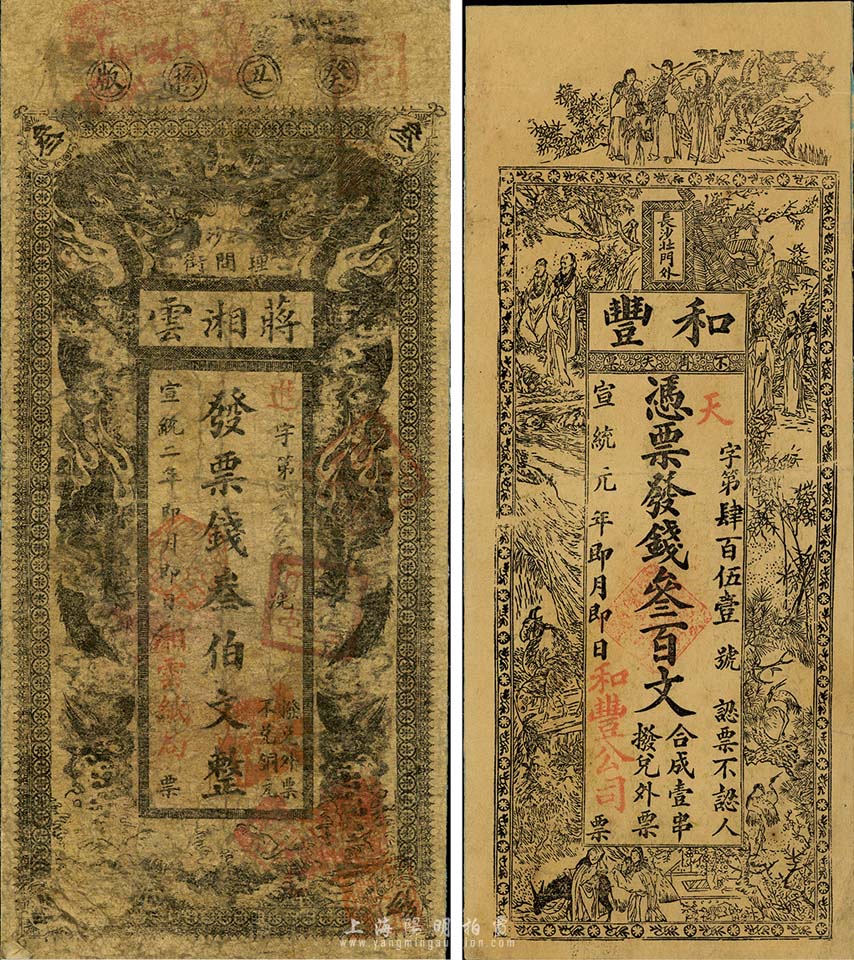 癸丑換版
叁
理問街
蔣湘雲
進字第
發票錢叁伯文整
撥兌外票
不兌銅元
宣統二年即月即日湘雲紙局票
長沙北門外
和豐
天字第肆百伍壹號 認票不認人
憑票發錢叁百文
合成壹串
撥兌外票
宣統元年即月即日和豐公司票
上海陽明拍賣
www.yangmingauction.com